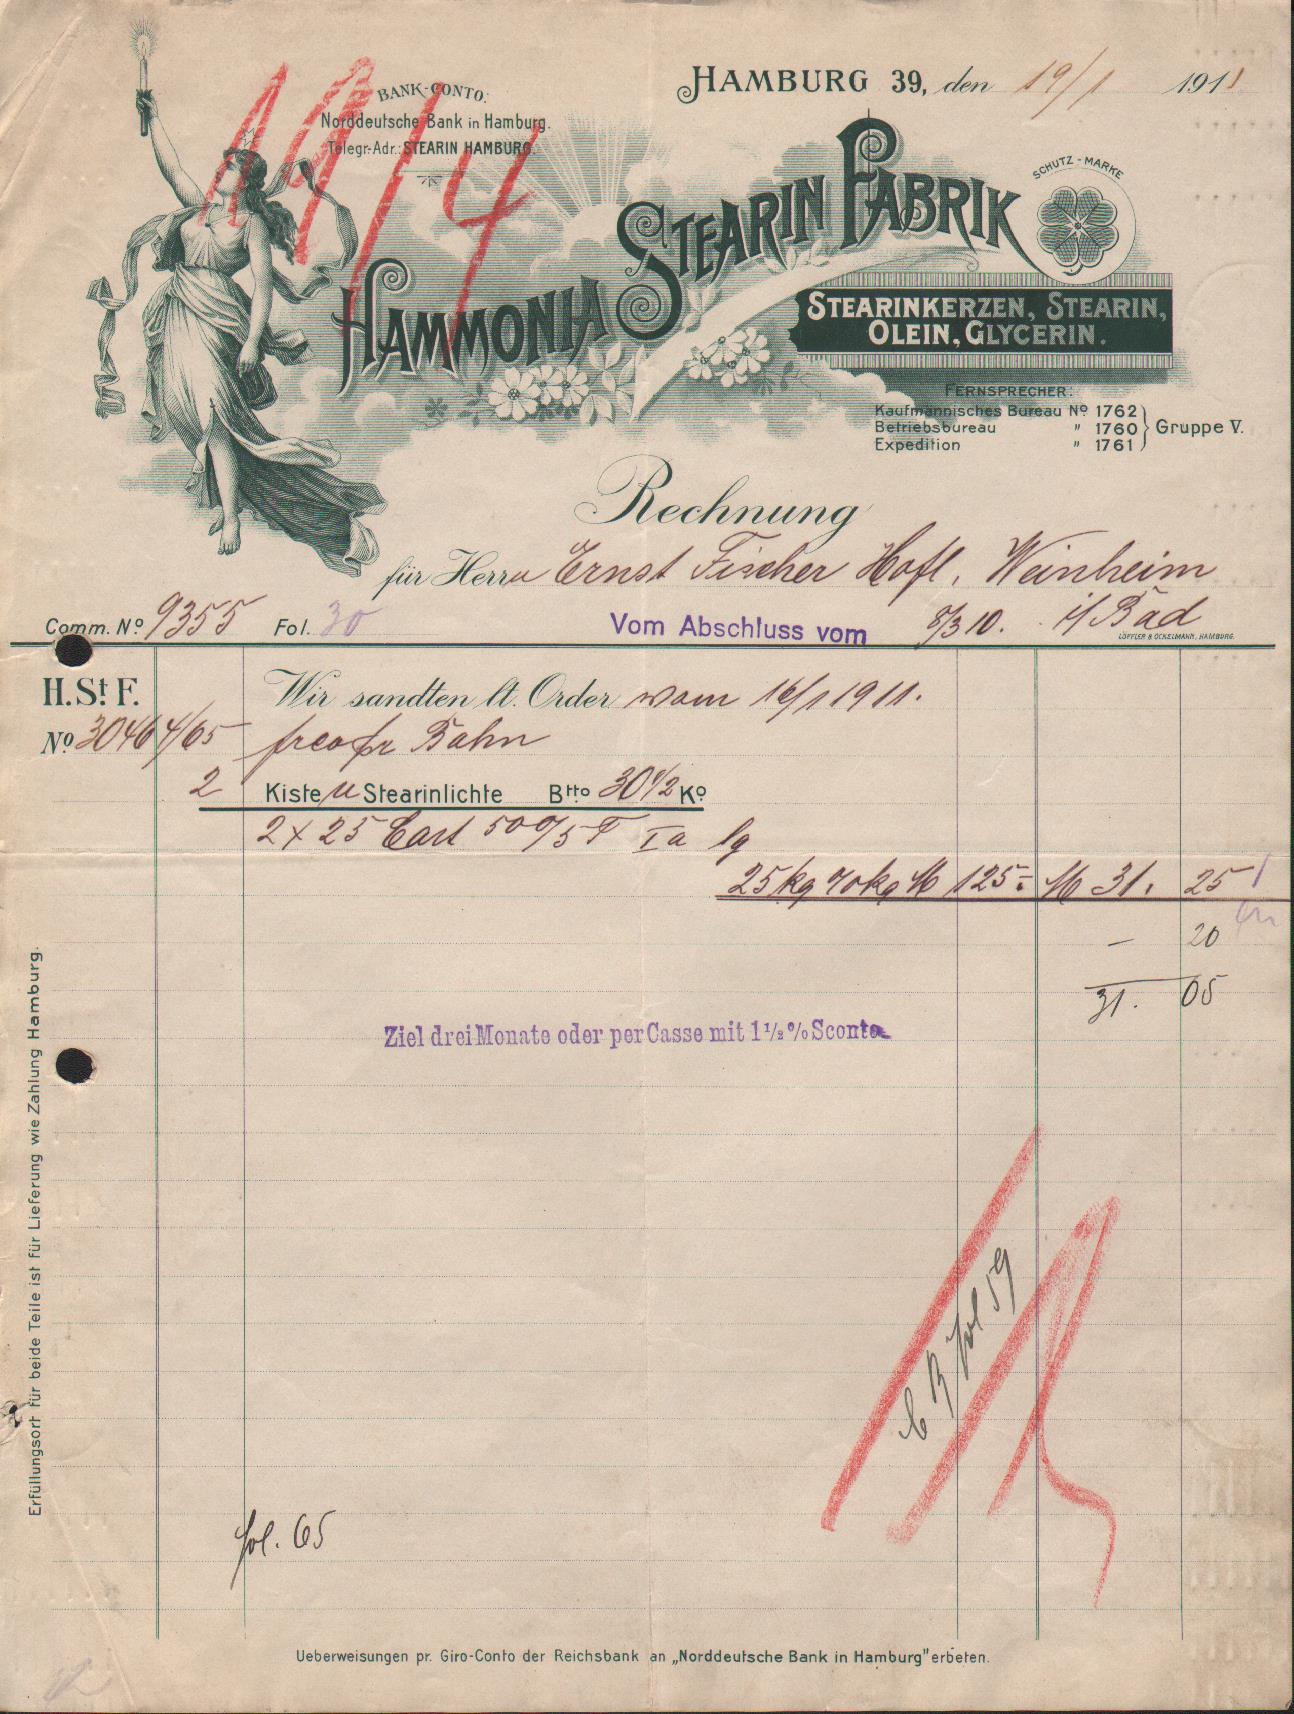 BANK-CONTO:
Norddeutsche Bank in Hamburg.
Telegr.-Adr.: STEARIN HAMBURG.
19/4
HAMBURG 39, den 19/1 1911
HAMMONIA STEARIN FABRIK
SCHUTZ-MARKE
STEARINKERZEN, STEARIN,
OLEIN, GLYCERIN.
FERNSPRECHER:
Kaufmännisches Bureau No 1762
Betriebsbureau " 1760
Expedition " 1761
Gruppe V.
Rechnung
für Herrn Ernst Fischer Hofl. Weinheim
i/Bad
Comm. No 9355 Fol. 30 Vom Abschluss vom 8/3 10.
LÖFFLER & OCKELMANN, HAMBURG.
H. St. F. Wir sandten lt. Order vom 16/1 1911.
No 30464/65 frco pr Bahn
2 Kisten Stearinlichte Btto 30 1/2 Ko
2 x 25 Cart 500/5 Ia lg
25 kg %kg M 125.- M 31. 25
— 20
31. 05
Ziel drei Monate oder per Casse mit 1 1/2 % Sconto
Erfüllungsort für beide Teile ist für Lieferung wie Zahlung Hamburg.
fol 59
fol. 65
Ueberweisungen pr. Giro-Conto der Reichsbank an „Norddeutsche Bank in Hamburg" erbeten.